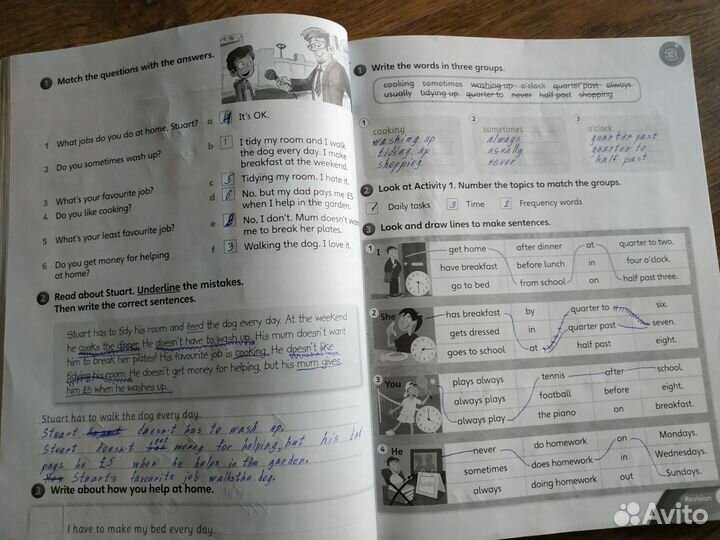 1 Match the questions with the answers.
1 What jobs do you do at home, Stuart?
2 Do you sometimes wash up?
3 What's your favourite job?
4 Do you like cooking?
5 What's your least favourite job?
6 Do you get money for helping
at home?
a 4 It's OK.
b 1 I tidy my room and I walk
the dog every day. I make
breakfast at the weekend.
c 5 Tidying my room. I hate it.
d 6 No, but my dad pays me £5
when I help in the garden.
e No, I don't. Mum doesn't want
me to break her plates.
f 3 Walking the dog. I love it.
2 Read about Stuart. Underline the mistakes.
Then write the correct sentences.
Stuart has to tidy his room and feed the dog every day. At the weekend
he cooks the dinner. He doesn't have to wash up. His mum doesn't want
him to break her plates! His favourite job is cooking. He doesn't like
tidying his room. He doesn't get money for helping, but his mum gives
him £5 when he washes up.
Stuart has to walk the dog every day.
Stuart doesn't has to wash up.
Stuart doesn't get money for helping, but his dad
pays he £5 when he helps in the garden.
Stuart's favourite job walks the dog.
3 Write about how you help at home.
I have to make my bed every day.
3
1 Write the words in three groups.
cooking sometimes washing up o'clock quarter past always
usually tidying up quarter to never half past shopping
1 cooking
washing up
tiding up
shopping
2 sometimes
always
usually
never
3 o'clock
quarter past
quarter to
half past
2 Look at Activity 1. Number the topics to match the groups.
1 Daily tasks 3 Time 2 Frequency words
3 Look and draw lines to make sentences.
1 I get home after dinner at quarter to two.
have breakfast before lunch in four o'clock.
go to bed from school on half past three.
2 She has breakfast by quarter to six.
gets dressed in quarter past seven.
goes to school at half past eight.
3 You plays always tennis after school.
always plays football before eight.
always play the piano on breakfast.
4 He never do homework on Mondays.
sometimes does homework in Wednesdays.
always doing homework out Sundays.
Revision
Avito